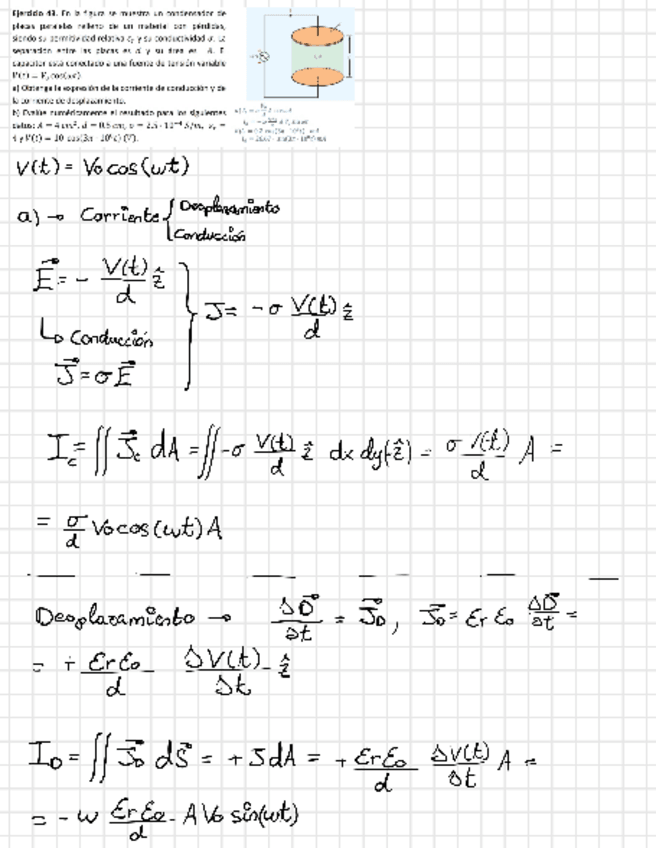 Ejercicio 43. En la figura se muestra un condensador de
placas paralelas relleno de un material con pérdidas,
siendo su permitividad relativa εr y su conductividad σ. La
separación entre las placas es d y su área es A. El
capacitor está conectado a una fuente de tensión variable
V(t) = V₀ cos(ωt)
a) Obtenga la expresión de la corriente de conducción y de
la corriente de desplazamiento.
b) Evalúe numéricamente el resultado para los siguientes
V(t) = Vo cos(ωt)
a) → Corriente { Desplazamiento
Conducción
E⃗ = - V(t)/d ẑ
J = -σ V(t)/d ẑ
↳ Conducción
J⃗ = σE⃗
I_c = ∬ J⃗_c dA = ∬ -σ V(t)/d ẑ dx dy(-ẑ) = σ V(t)/d A =
= σ/d Vo cos(ωt) A
Desplazamiento → ΔD⃗/∂t = J⃗_D, J⃗_D = εr εo ΔD⃗/∂t =
= + εr εo/d ΔV(t)/Δt ẑ
I_D = ∬ J⃗_D dS⃗ = + J dA = + εr εo/d ΔV(t)/Δt A =
= - ω εr εo/d A Vo sin(ωt)